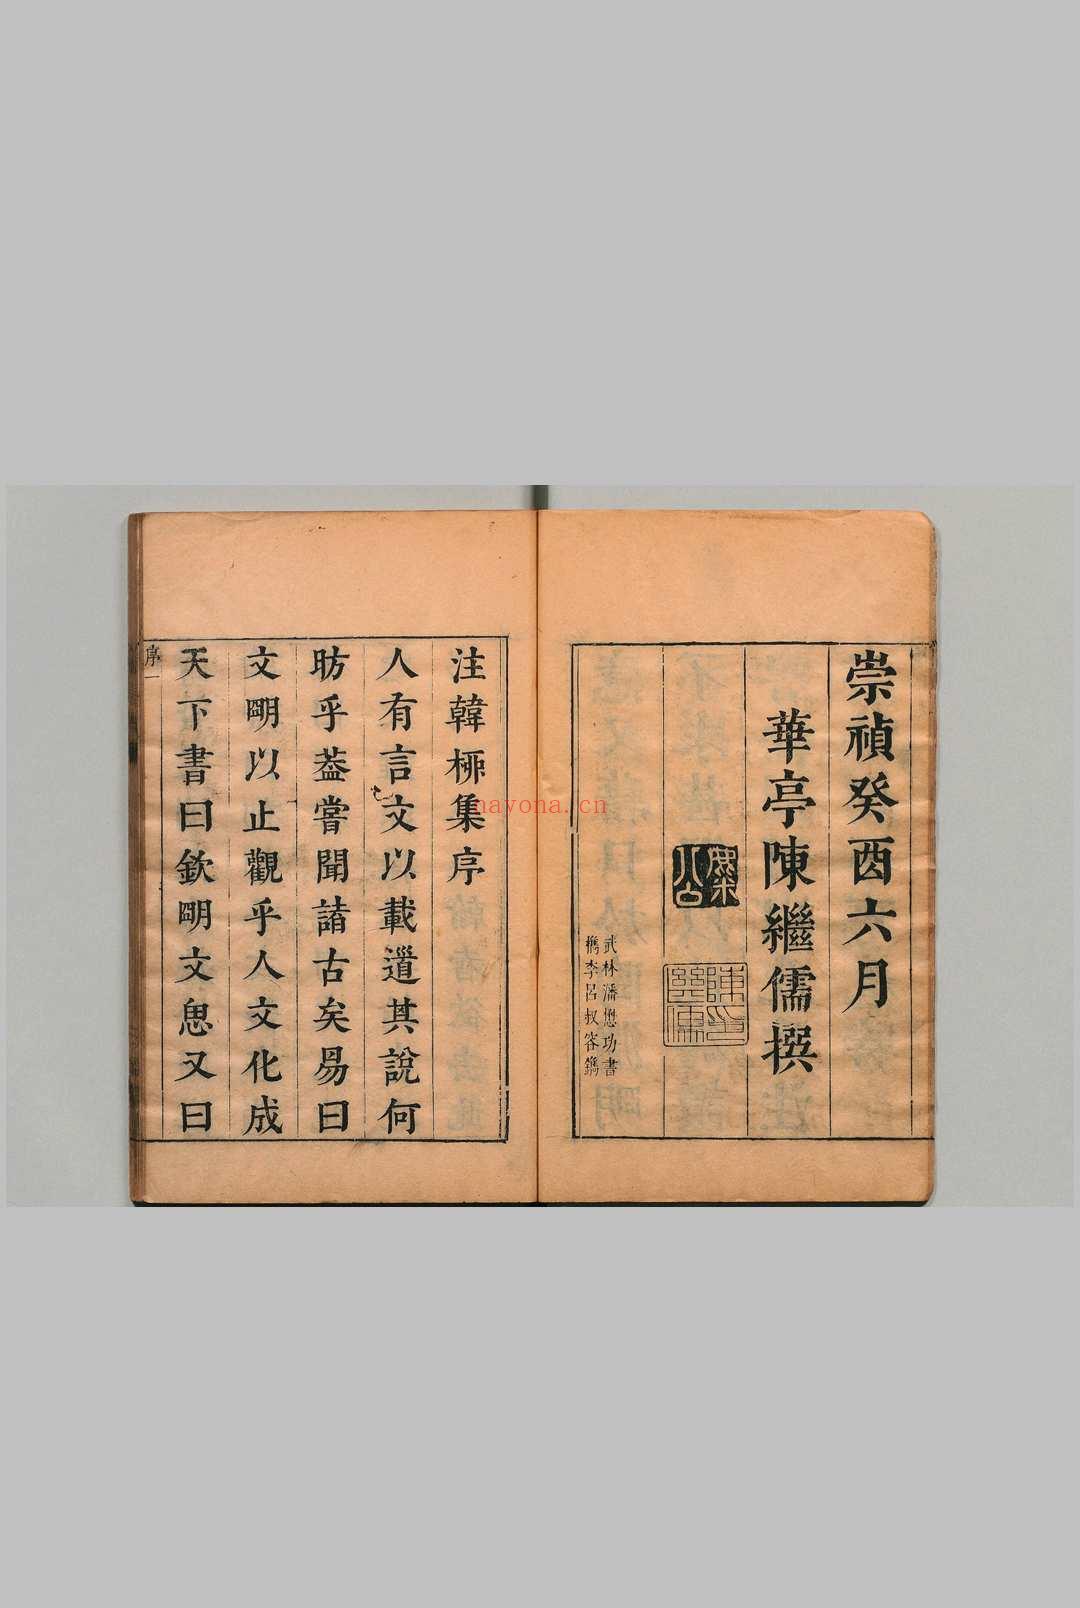 崇禎癸酉六月
華亭陳繼儒撰
武林潘懋功書
檇李呂叔容鐫
注韓桺集序
人有言文以載道其說何
昉乎葢嘗聞諸古矣易曰
文明以止觀乎人文化成
天下書曰欽明文思又曰
序一
nayona.cn